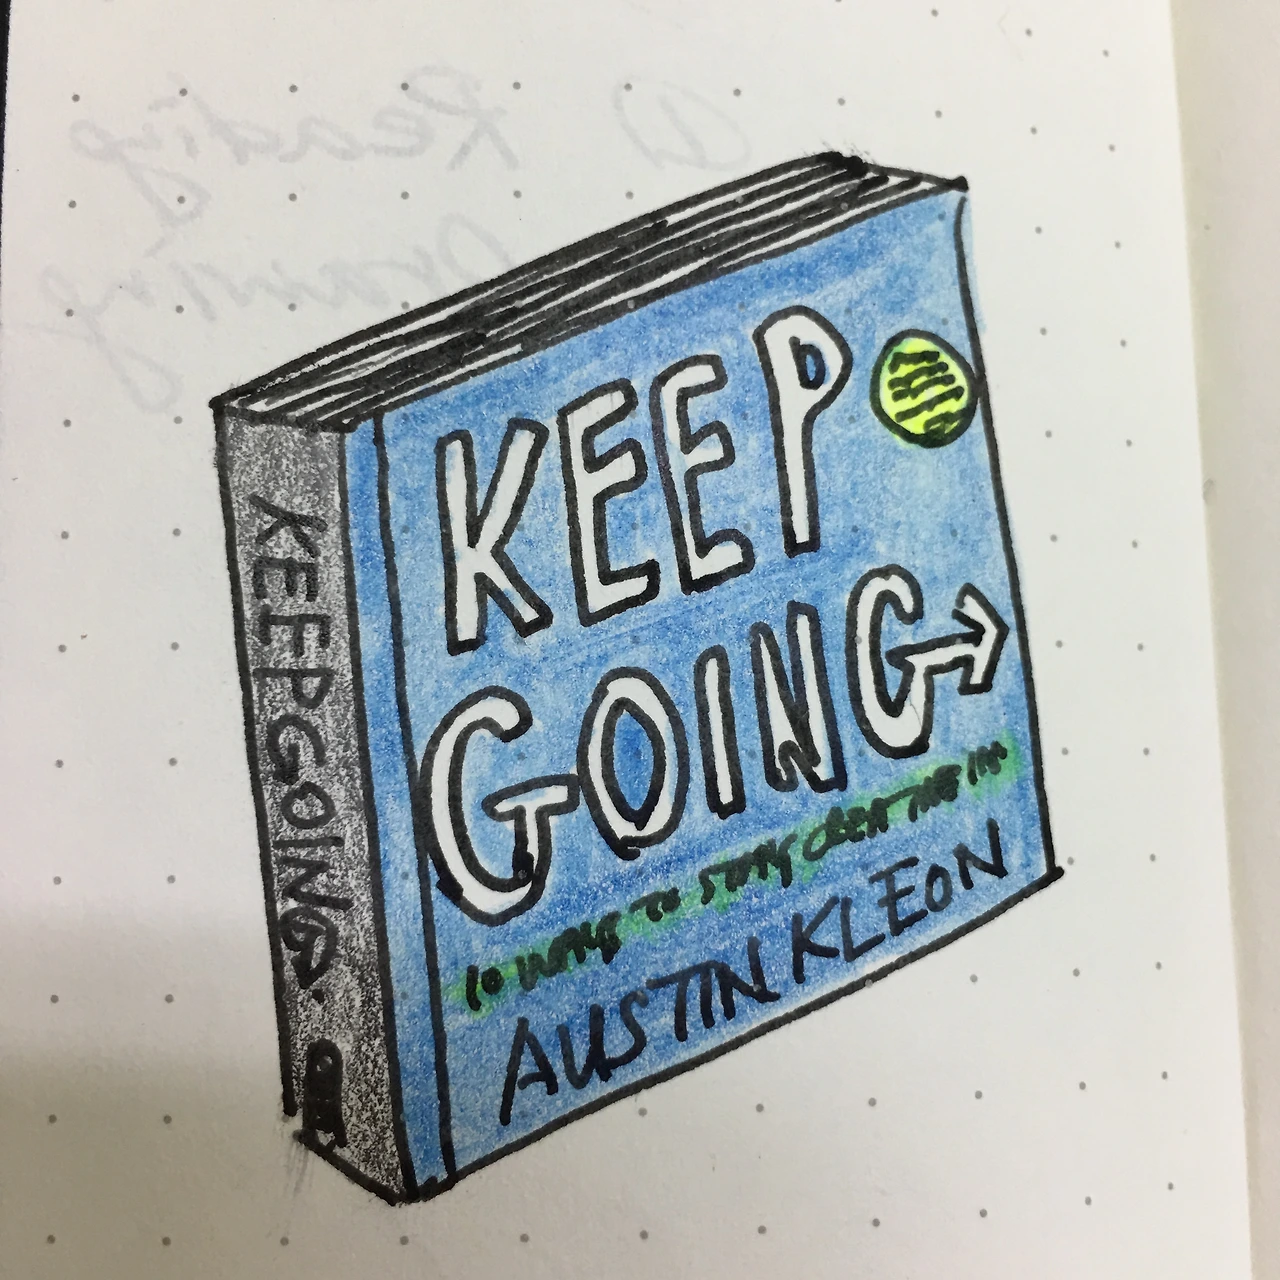 Reading
Drawing
KEEP
GOING
10 WAYS TO STAY CREATIVE IN
AUSTIN KLEON
KEEP GOING.